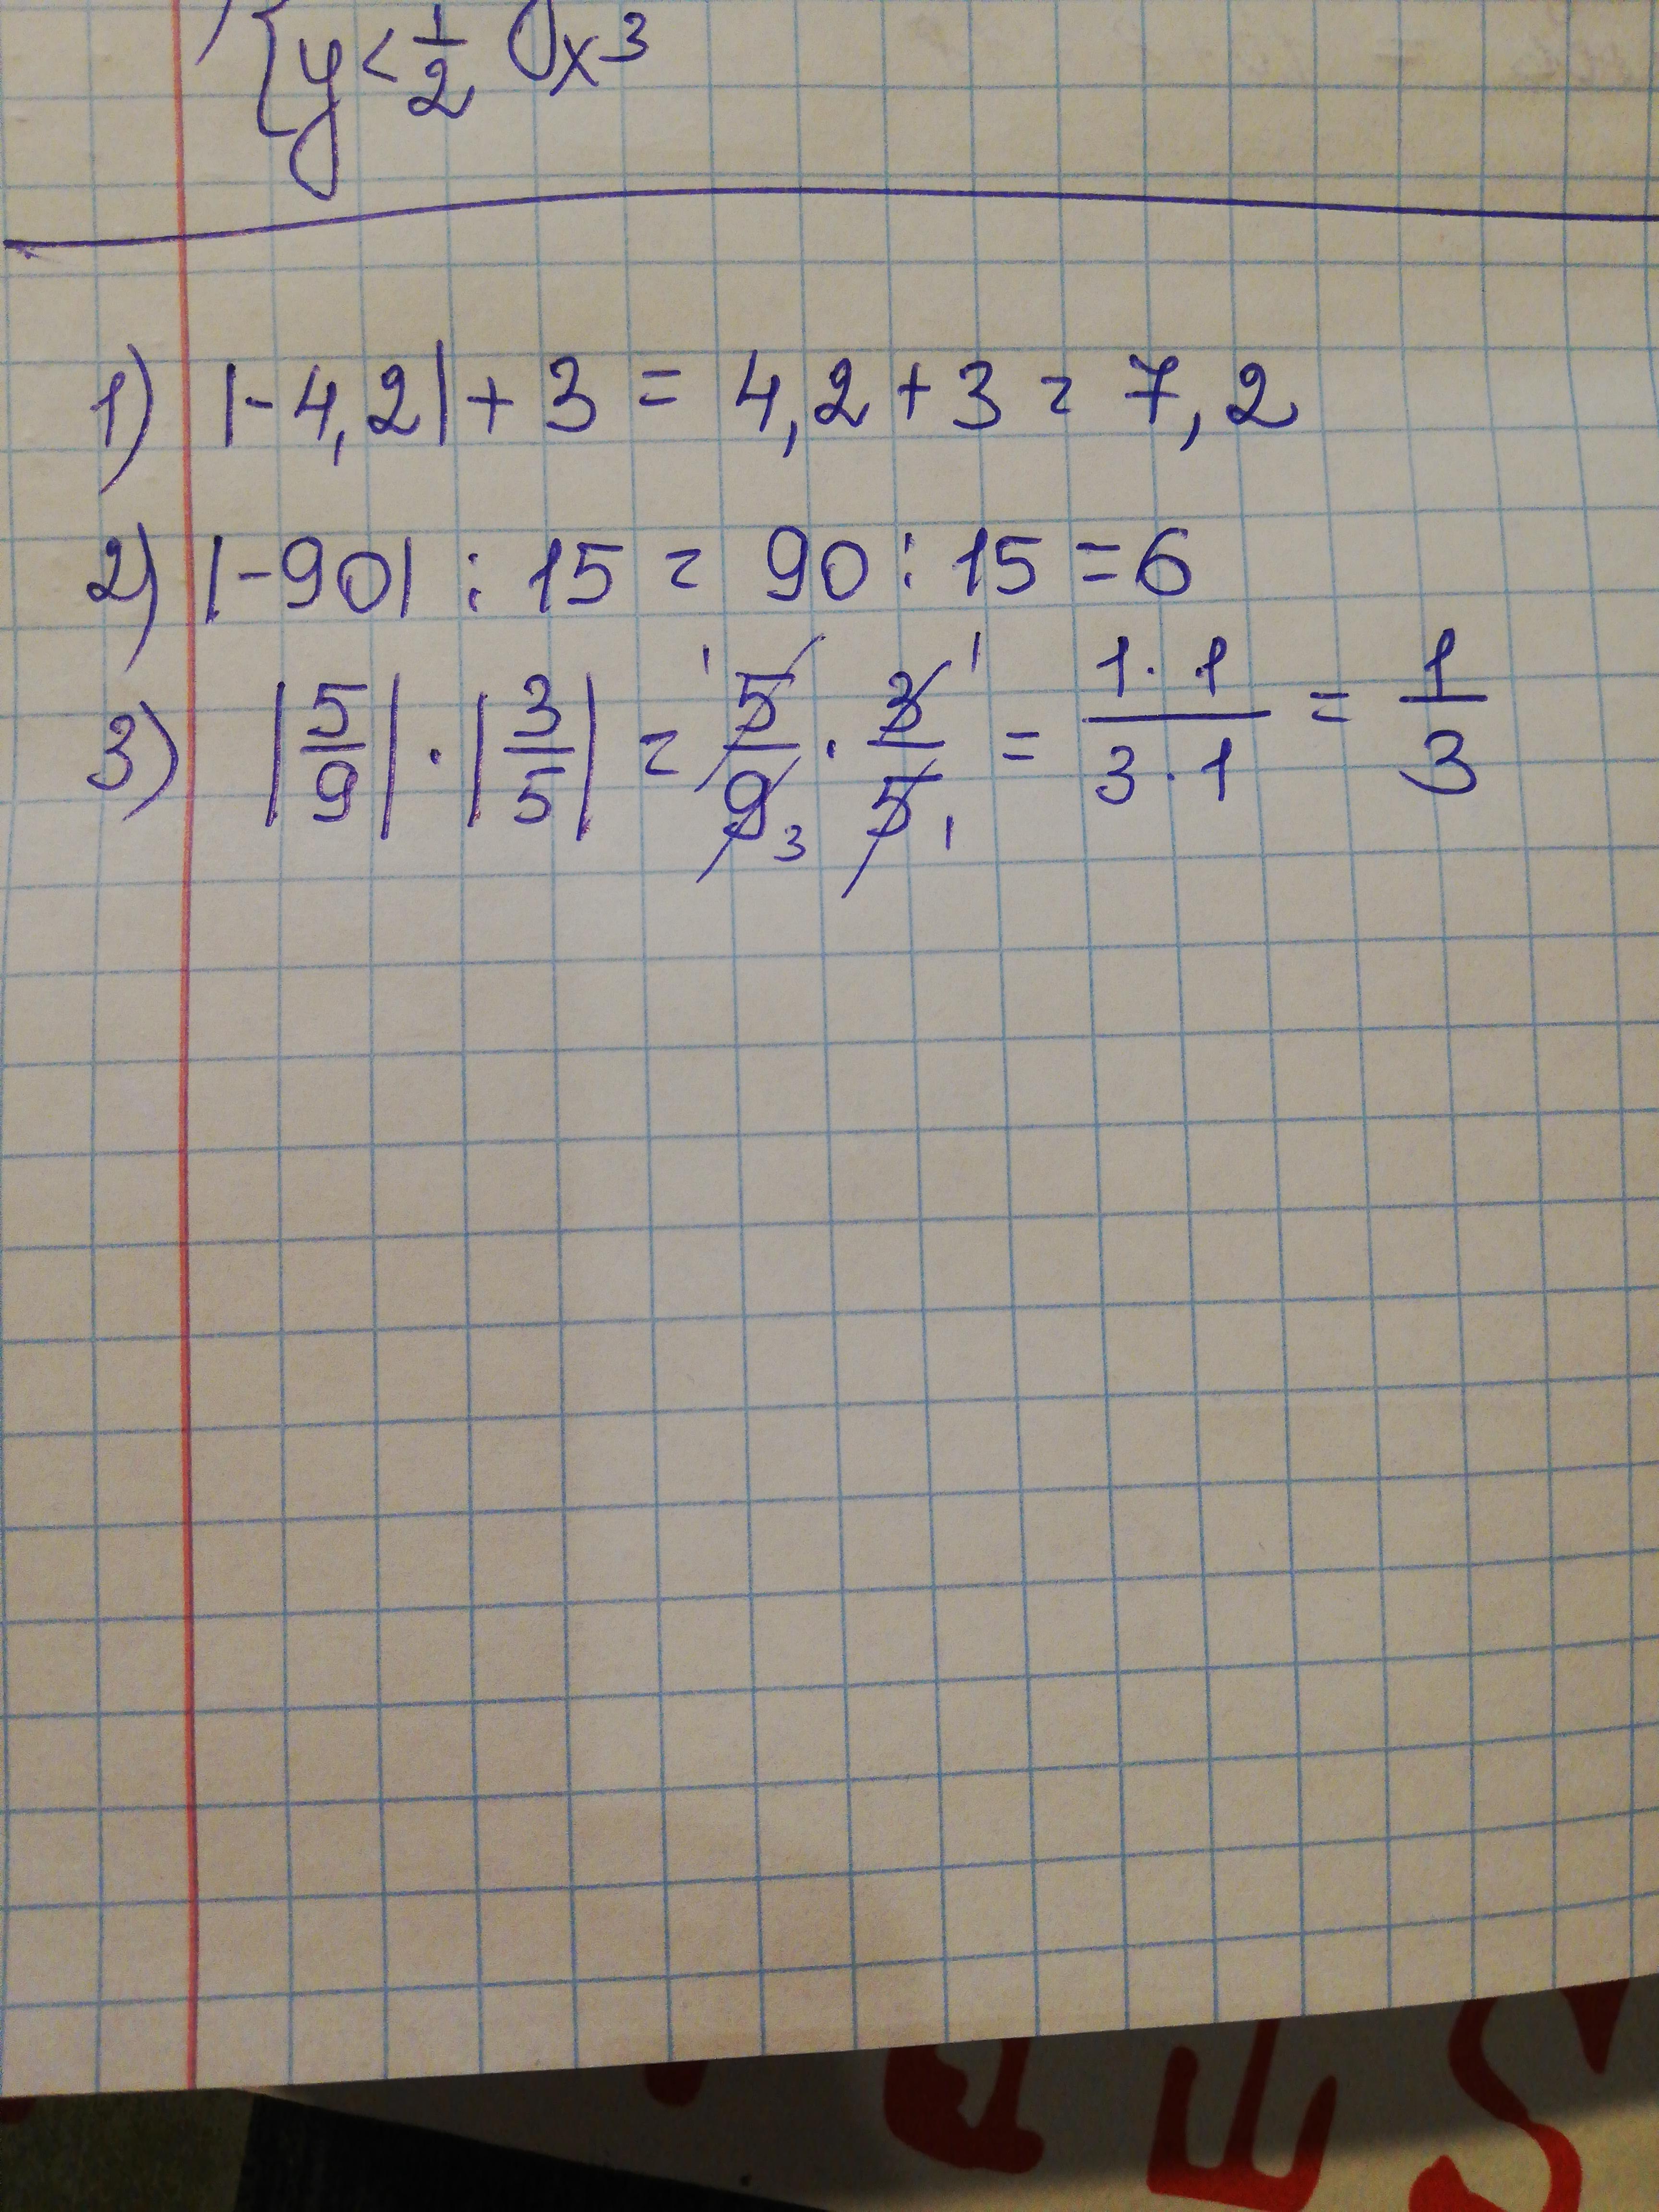 {y < 1/2 x 3
1) |-4,2| + 3 = 4,2 + 3 = 7,2
2) |-90| : 15 = 90 : 15 = 6
3) |5/9| · |3/5| = ¹5/9₃ · 3¹/5₁ = 1·1/3·1 = 1/3